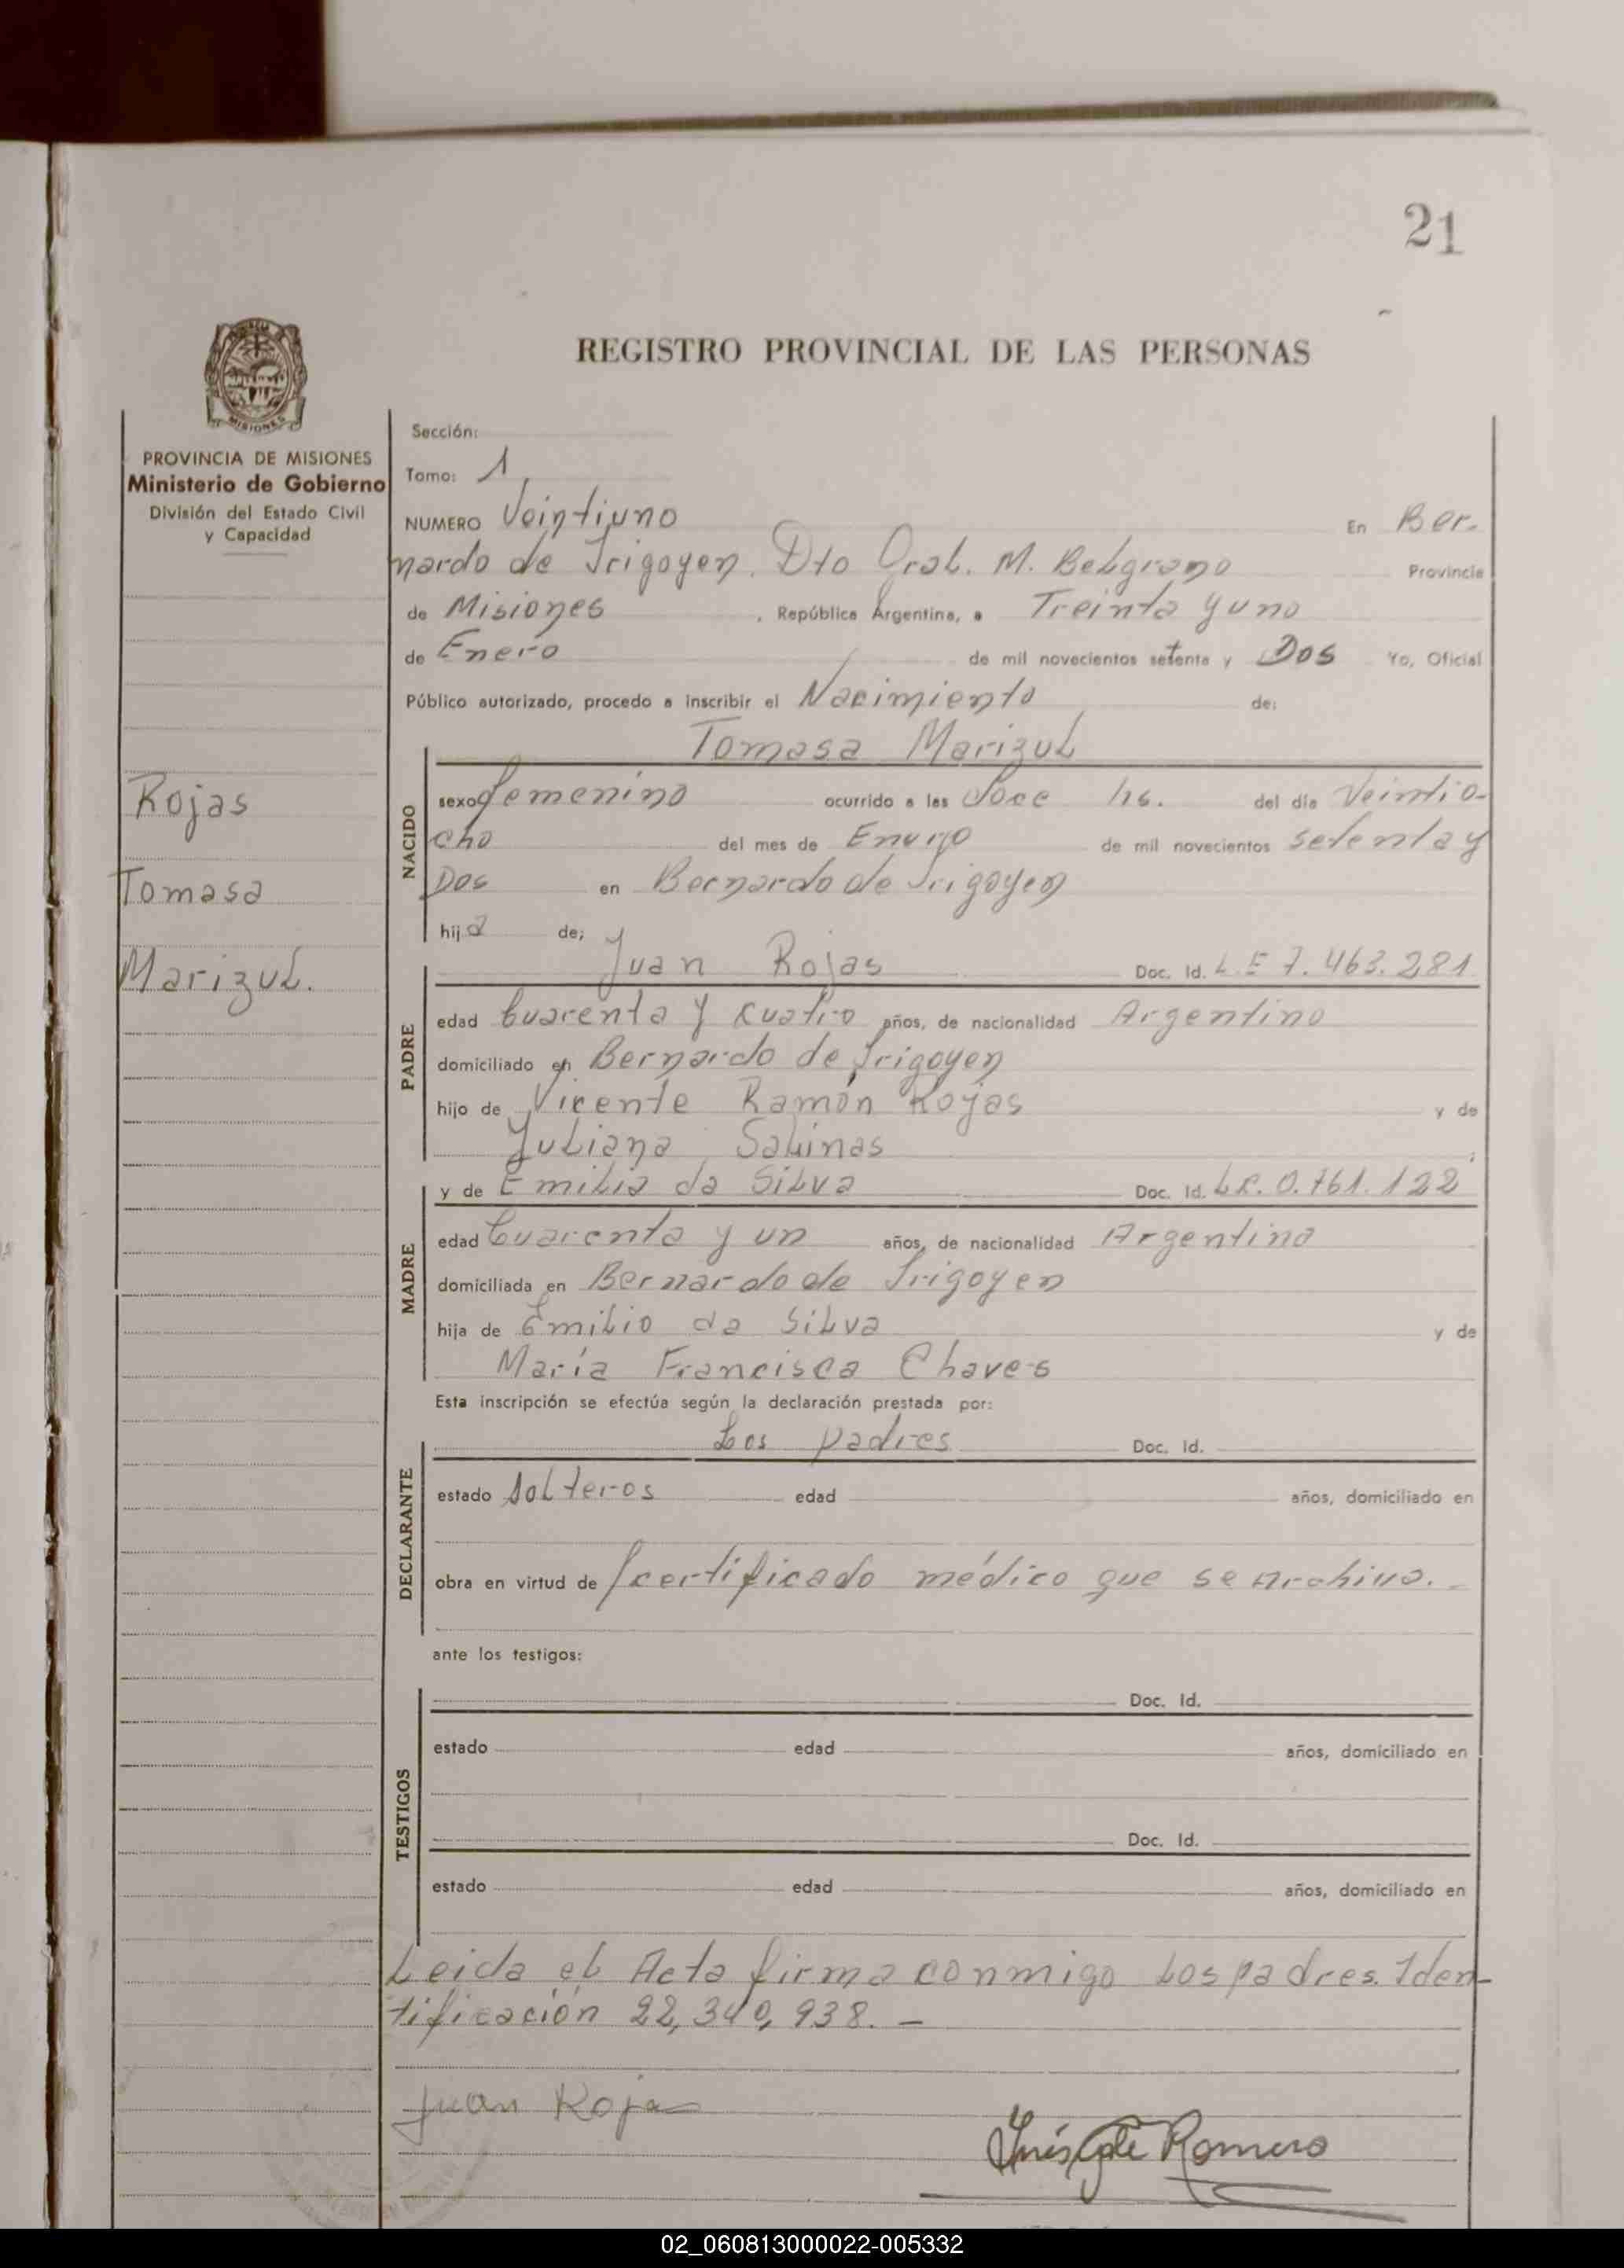 21
REGISTRO PROVINCIAL DE LAS PERSONAS
MISIONES
PROVINCIA DE MISIONES
Ministerio de Gobierno
División del Estado Civil
y Capacidad
Rojas
Tomasa
Marizul.
Sección:
Tomo: 1
NUMERO Veintiuno En Ber-
nardo de Irigoyen. Dto Gral. M. Belgrano Provincia
de Misiones, República Argentina, a Treinta y uno
de Enero de mil novecientos setenta y Dos Yo, Oficial
Público autorizado, procedo a inscribir el Nacimiento de:
Tomasa Marizul
NACIDO
sexo femenino ocurrido a las Doce hs. del día Veintio-
cho del mes de Enero de mil novecientos setenta y
Dos en Bernardo de Irigoyen
hija de;
PADRE
Juan Rojas Doc. Id. L.E 7.463.281
edad Cuarenta y cuatro años, de nacionalidad Argentino
domiciliado en Bernardo de Irigoyen
hijo de Vicente Ramón Rojas y de
Juliana Salinas;
MADRE
y de Emilia da Silva Doc. Id. L.C. 0.761.122
edad Cuarenta y un años, de nacionalidad Argentina
domiciliada en Bernardo de Irigoyen
hija de Emilio da Silva y de
María Francisca Chaves
Esta inscripción se efectúa según la declaración prestada por:
DECLARANTE
Los padres Doc. Id.
estado Solteros edad años, domiciliado en
obra en virtud de certificado médico que se archiva.-
ante los testigos:
TESTIGOS
Doc. Id.
estado edad años, domiciliado en
Doc. Id.
estado edad años, domiciliado en
Leida el Acta firma conmigo Los padres. Iden-
tificación 22,340,938.-
Juan Rojas
Inés de Romero
02_060813000022-005332